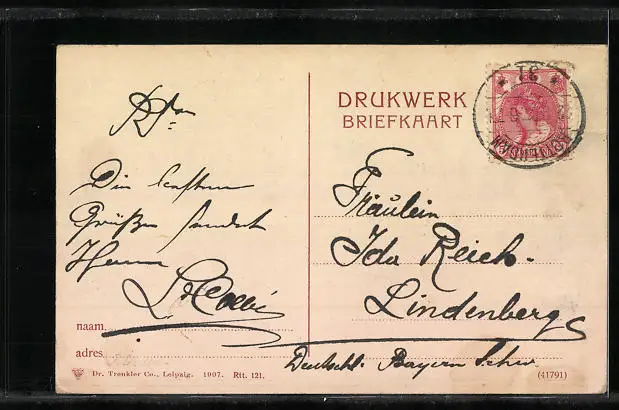 Die besten
Grüße sendet
DRUKWERK
BRIEFKAART
Fräulein
Ida Reich.
Lindenberg
Deutschl. Bayern Schw.
naam
adres
Dr. Trenkler Co., Leipzig. 1907. Rtt. 121.
(41791)